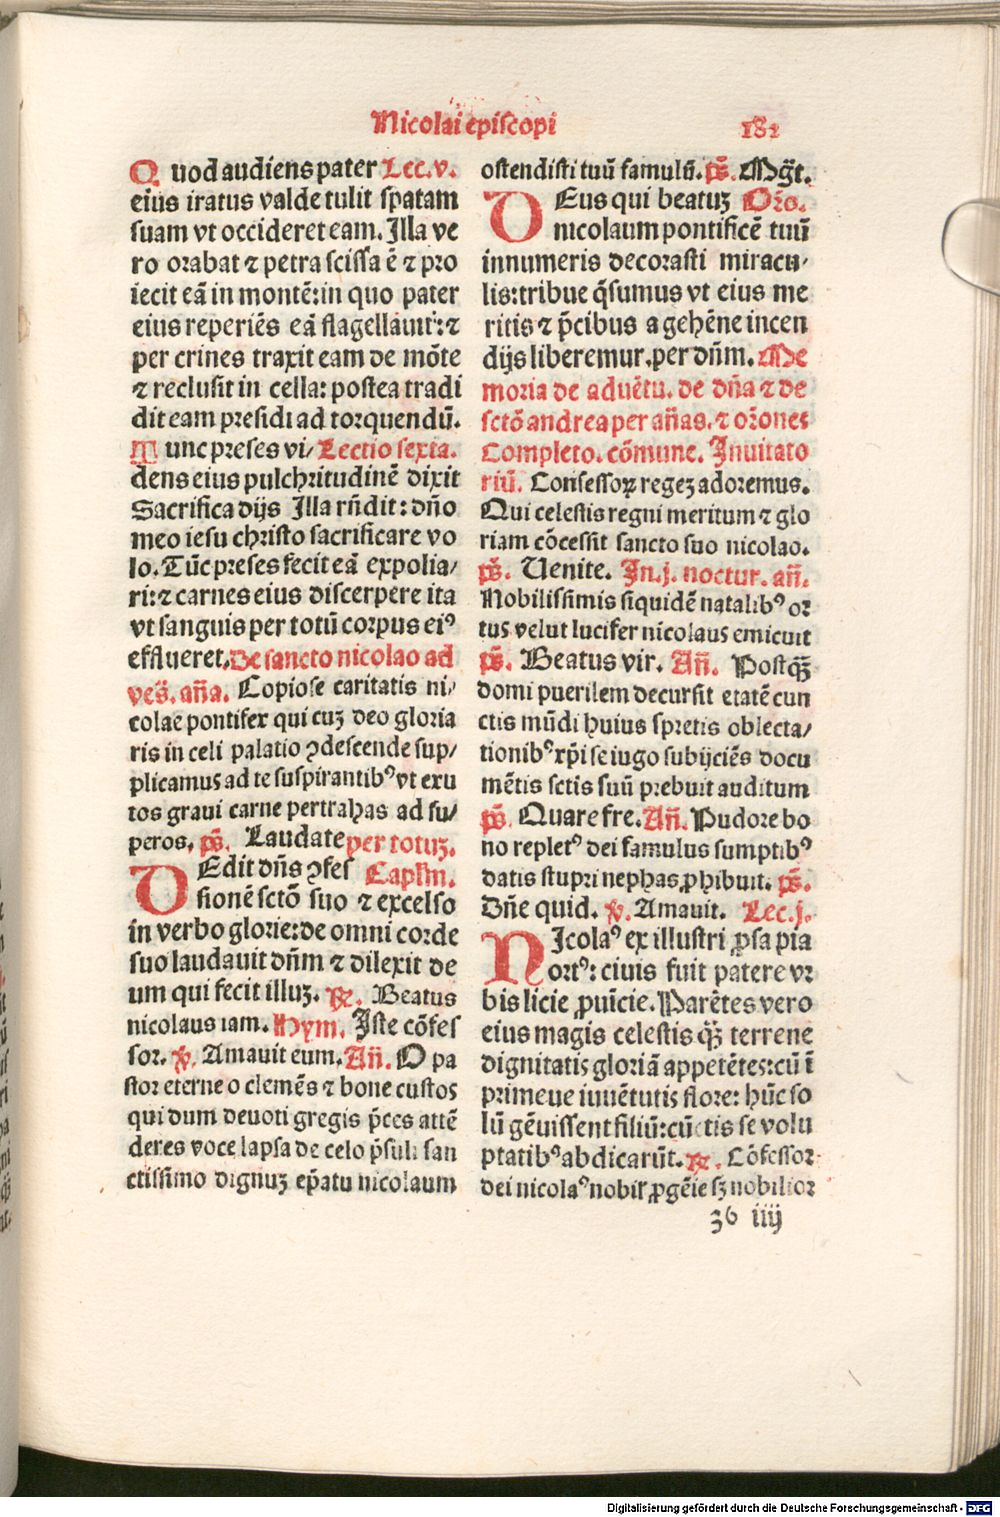 Nicolai episcopi 182
Quod audiens pater Lec. v.
eius iratus valde tulit spatam
suam vt occideret eam. Illa ve
ro orabat ⁊ petra scissa ē ⁊ pro
iecit eā in montē: in quo pater
eius reperiēs eā flagellauit: ⁊
per crines traxit eam de mōte
⁊ reclusit in cella: postea tradi
dit eam presidi ad torquendū.
Tunc preses vi/ Lectio sexta.
dens eius pulchritudinē dixit
Sacrifica dijs Illa rn̄dit: dn̄o
meo iesu christo sacrificare vo
lo. Tūc preses fecit eā expolia/
ri: ⁊ carnes eius discerpere ita
vt sanguis per totū corpus eiꝰ
efflueret. De sancto nicolao ad
ves̄. an̄a. Copiose caritatis ni/
colae pontifex qui cuꝫ deo gloria
ris in celi palatio ꝯdescende sup/
plicamus ad te suspirantibꝰ vt exu
tos graui carne pertrahas ad su/
peros. ps̄. Laudate per totuꝫ.
DEdit dn̄s ꝯfes Caplm̄.
sionē sctō suo ⁊ excelso
in verbo glorie: de omni corde
suo laudauit dn̄m ⁊ dilexit de
um qui fecit illuꝫ. ℟. Beatus
nicolaus iam. Hym. Iste cōfes
sor. ℣. Amauit eum. An̄. O pa
stor eterne o clemēs ⁊ bone custos
qui dum deuoti gregis p̄ces attē
deres voce lapsa de celo p̄suli san
ctissimo dignuꝫ ep̄atu nicolaum
ostendisti tuū famulū. ps̄. Mgt̄.
DEus qui beatuꝫ Orō.
nicolaum pontificē tuū
innumeris decorasti miracu/
lis: tribue q̄sumus vt eius me
ritis ⁊ p̄cibus a gehēne incen
dijs liberemur. per dn̄m. Me
moria de aduētu. de dn̄a ⁊ de
sctō andrea per an̄as. ⁊ orōnes
Completo. cōmune. Inuitato
riū. Confessoꝝ regeꝫ adoremus.
Qui celestis regni meritum ⁊ glo
riam cōcessit sancto suo nicolao.
ps̄. Venite. In. j. noctur. an̄.
Nobilissimis siquidē natalibꝰ or
tus velut lucifer nicolaus emicuit
ps̄. Beatus vir. An̄. Postqꝫ̄
domi puerilem decursit etatē cun
ctis mūdi huius spretis oblecta/
tionibꝰ xp̄i se iugo subijciēs docu
mētis sctis suū prebuit auditum
ps̄. Quare fre. An̄. Pudore bo
no repletꝰ dei famulus sumptibꝰ
datis stupri nephas ꝓhibuit. ps̄.
Dn̄e quid. ℣. Amauit. Lec. j.
NIcolaꝰ ex illustri ꝓsapia
ortꝰ: ciuis fuit patere vr
bis licie ꝓuīcie. Parētes vero
eius magis celestis qꝫ̄ terrene
dignitatis gloriā appetētes: cū ī
primeue iuuētutis flore: hūc so
lū gēuissent filiū: cūctis se volu
ptatibꝰ abdicarūt. ℟. Cōfessor
dei nicolaꝰ nobił ꝓgēie sꝫ nobilior
36 iiij
Digitalisierung gefördert durch die Deutsche Forschungsgemeinschaft - DFG